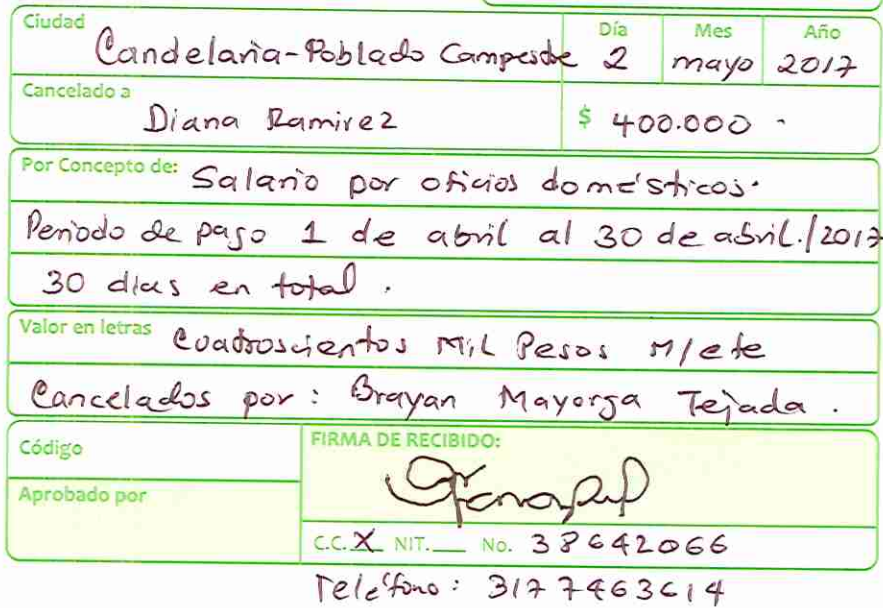 Ciudad Día Mes Año
Candelaria-Poblado Campestre 2 mayo 2017
Cancelado a
Diana Ramirez $ 400.000 -
Por Concepto de: Salario por oficios domésticos.
Periodo de pago 1 de abril al 30 de abril./2017
30 dias en total.
Valor en letras Cuatroscientos Mil Pesos M/cte
Cancelados por: Brayan Mayorga Tejada.
Código FIRMA DE RECIBIDO:
Aprobado por
C.C. X NIT. No. 38642066
Teléfono: 3177463614